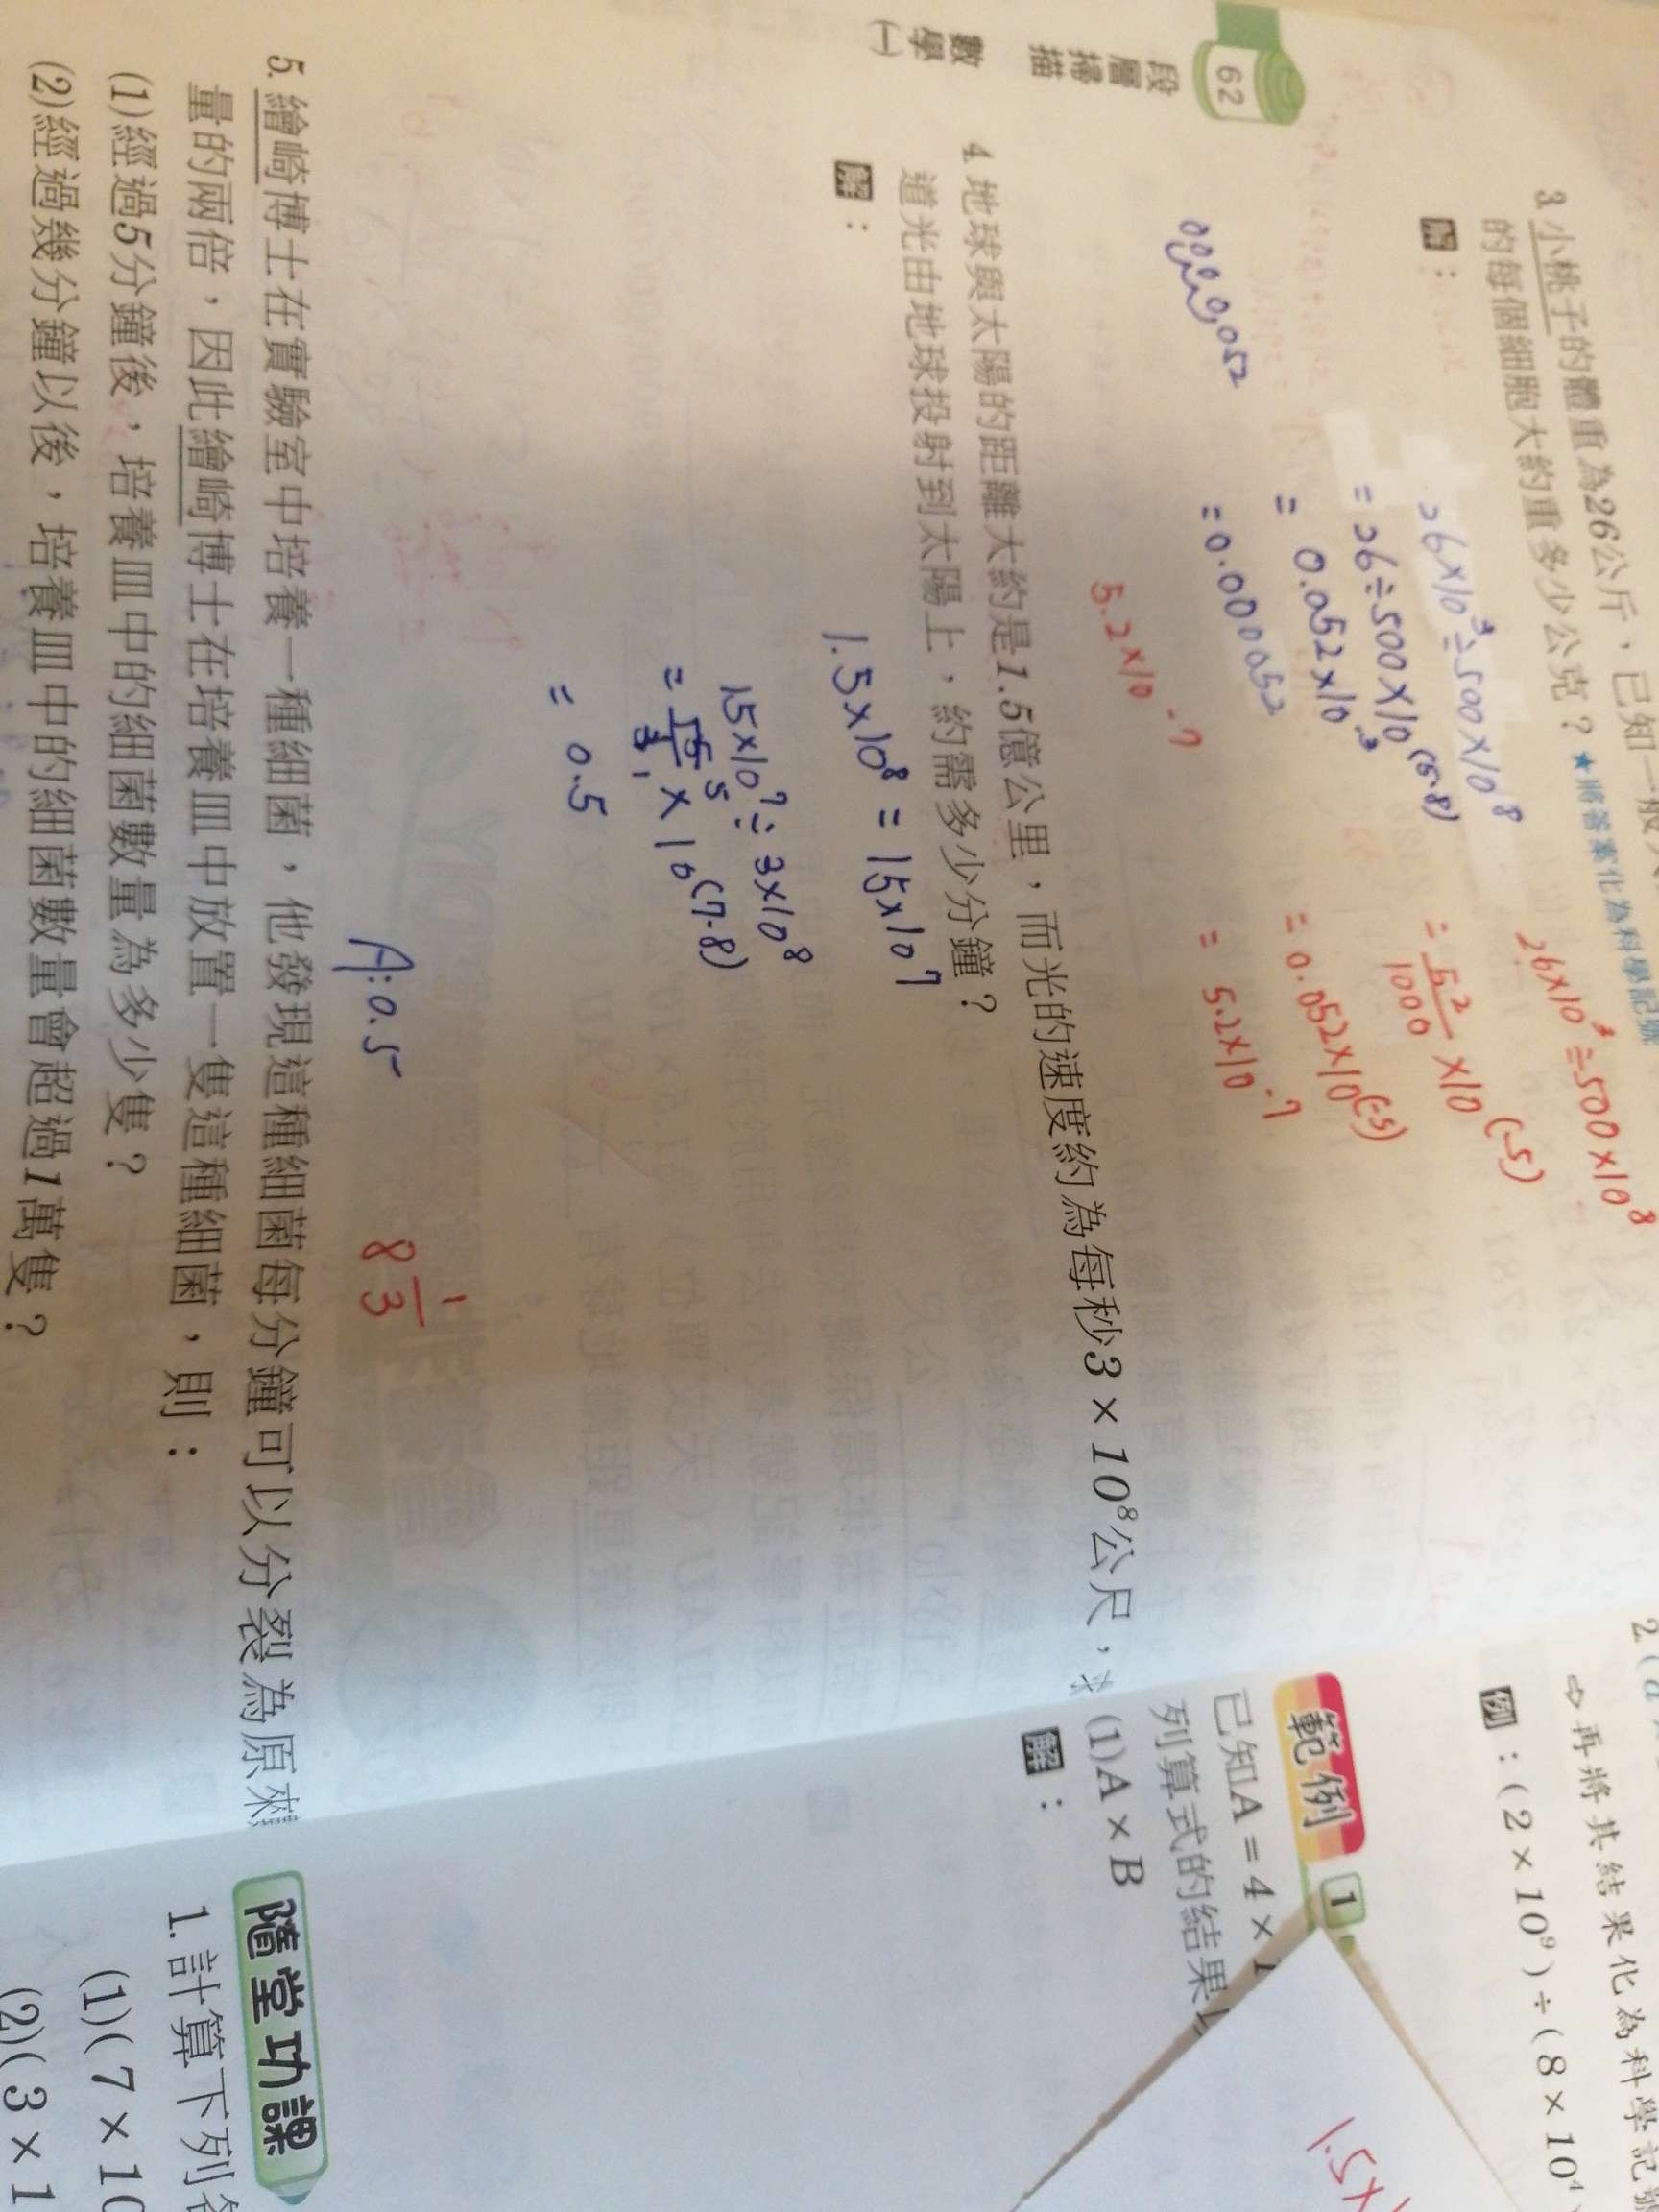 62
段層掃描
數學(一)
3.小桃子的體重為26公斤，已知一般人
的每個細胞大約重多少公克？★將答案化為科學記號
解：
26×10³÷500×10⁸
=26÷500×10⁽⁵⁻⁸⁾
= 0.052×10⁻³
=0.000052
5.2×10⁻⁷
0000,052
26×10³÷500×10⁸
=52/1000×10⁽⁻⁵⁾
=0.052×10⁽⁻⁵⁾
= 5.2×10⁻⁷
4.地球與太陽的距離大約是1.5億公里，而光的速度約為每秒3×10⁸公尺，求
道光由地球投射到太陽上，約需多少分鐘？
解：
1.5×10⁸=15×10⁷
15×10⁷÷3×10⁸
=15/3×10⁽⁷⁻⁸⁾
5
1
= 0.5
A:0.5
8 1/3
5.繪崎博士在實驗室中培養一種細菌，他發現這種細菌每分鐘可以分裂為原來
量的兩倍，因此繪崎博士在培養皿中放置一隻這種細菌，則：
(1)經過5分鐘後，培養皿中的細菌數量為多少隻？
(2)經過幾分鐘以後，培養皿中的細菌數量會超過1萬隻？
2.(a
⇨再將其結果化為科學記號
例：(2×10⁹)÷(8×10⁴
範例 1
已知A=4×1
列算式的結果以
(1)A×B
解：
1.5×
隨堂功課
1.計算下列各
(1)(7×10
(2)(3×1